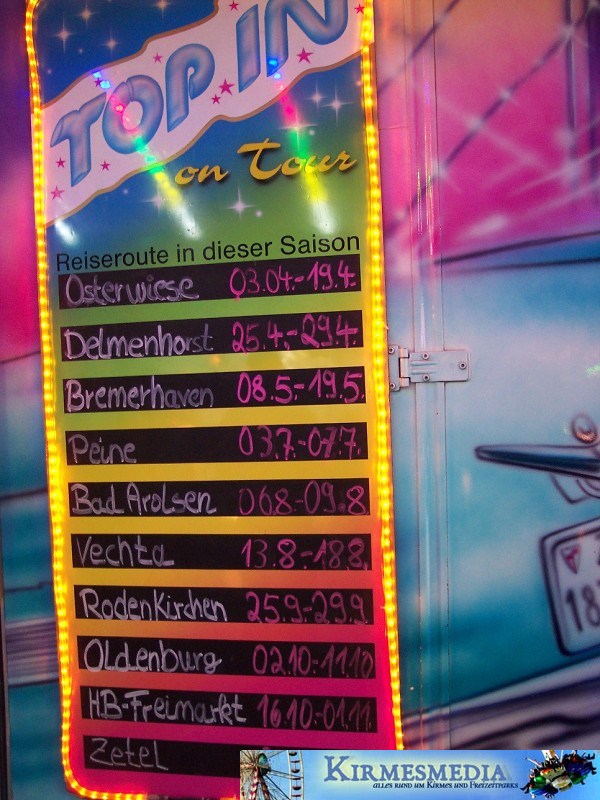 TOP IN
on Tour
Reiseroute in dieser Saison
Osterwiese 03.04.-19.4.
Delmenhorst 25.4.-29.4.
Bremerhaven 08.5.-19.5.
Peine 03.7.-07.7.
Bad Arolsen 06.8-09.8.
Vechta 13.8-18.8.
Rodenkirchen 25.9-29.9.
Oldenburg 02.10.-11.10
HB-Freimarkt 16.10.-01.11.
Zetel
18
KIRMESMEDIA
ALLES RUND UM KIRMES UND FREIZEITPARKS